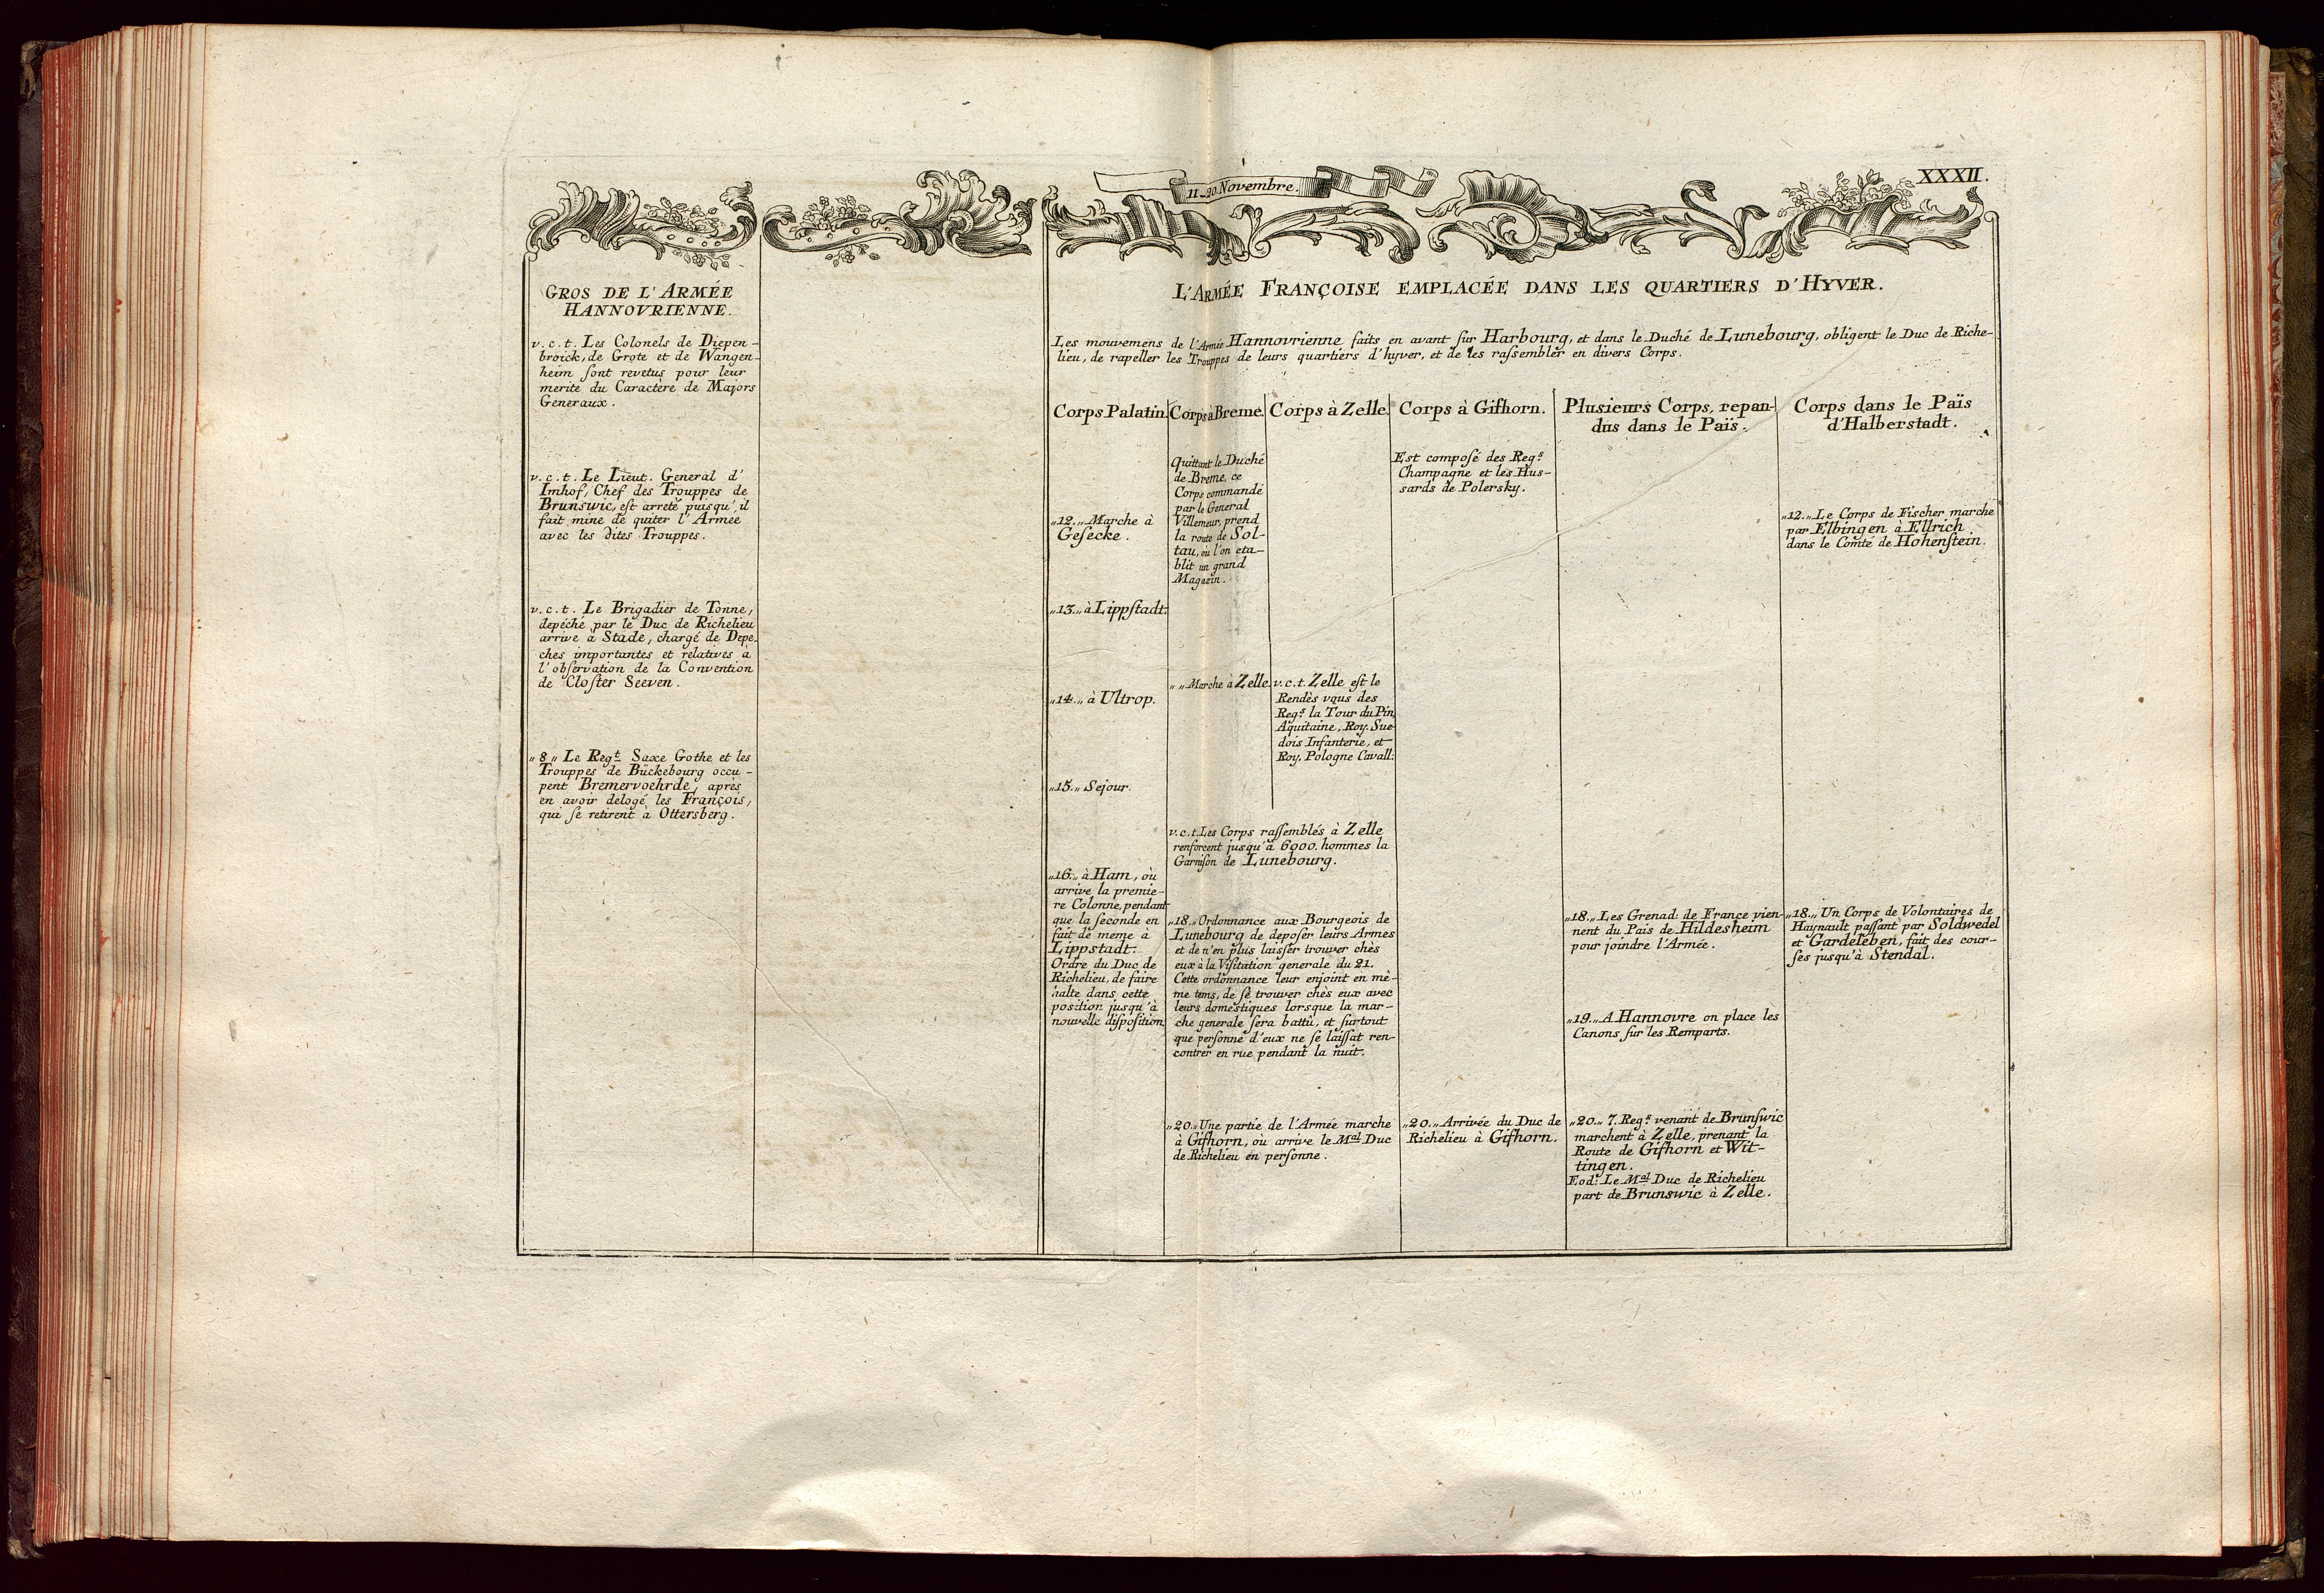 11_20. Novembre.
XXXII.
GROS DE L'ARMÉE
HANNOVRIENNE.
v.c.t. Les Colonels de Diepen-
broick, de Grote et de Wangen-
heim ſont revetus pour leur
merite du Caractère de Majors
Generaux.
v.c.t. Le Lieut. General d'
Imhof, Chef des Trouppes de
Brunswic, eſt arreté puisqu'il
fait mine de quiter l'Armée
avec les dites Trouppes.
v.c.t. Le Brigadier de Tonne,
depéché par le Duc de Richelieu
arrive à Stade, chargé de Depe-
ches importantes et relatives à
l'obſervation de la Convention
de Cloſter Seeven.
„8„ Le Regt. Saxe Gothe et les
Trouppes de Bückebourg occu-
pent Bremervoehrde, après
en avoir delogé les François,
qui ſe retirent à Ottersberg.
L'ARMÉE FRANÇOISE EMPLACÉE DANS LES QUARTIERS D'HYVER.
Les mouvemens de l'Armée Hannovrienne faits en avant ſur Harbourg, et dans le Duché de Lunebourg, obligent le Duc de Riche-
lieu, de rapeller les Trouppes de leurs quartiers d'hyver, et de les raſſembler en divers Corps.
Corps Palatin.
„12.„ Marche à
Geſecke.
„13.„ à Lippſtadt.
„14.„ à Ultrop.
„15.„ Sejour.
„16.„ à Ham, où
arrive la premie-
re Colonne, pendant
que la ſeconde en
fait de meme à
Lippstadt.
Ordre du Duc de
Richelieu, de faire
halte dans cette
position jusqu'à
nouvelle diſpoſition.
Corps à Breme.
Quittant le Duché
de Breme, ce
Corps commandé
par le General
Villemeur, prend
la route de Sol-
tau, où l'on eta-
blit un grand
Magazin.
„ „ Marche à Zelle.
Corps à Zelle.
v.c.t. Zelle eſt le
Rendès vous des
Regs. la Tour du Pin,
Aquitaine, Roy. Sue-
dois Infanterie, et
Roy. Pologne Cavall:
v.c.t. Les Corps raſſemblés à Zelle
renforcent jusqu'à 6000. hommes la
Garniſon de Lunebourg.
„18.„ Ordonnance aux Bourgeois de
Lunebourg de depoſer leurs Armes
et de n'en plus laiſſer trouver chès
eux à la Viſitation generale du 21.
Cette ordonnance leur enjoint en mè-
me tems, de ſe trouver chès eux avec
leurs domestiques lorsque la mar-
che generale ſera battü, et ſurtout
que perſonne d'eux ne ſe laiſſat ren-
contrer en rue pendant la nuit.
„20.„ Une partie de l'Armée marche
à Gifhorn, où arrive le Mal Duc
de Richelieu en perſonne.
Corps à Gifhorn.
Est compoſé des Regs.
Champagne et les Hus-
sards de Polersky.
„20.„ Arrivée du Duc de
Richelieu à Gifhorn.
Plusieurs Corps, repan-
dus dans le Païs.
„18.„ Les Grenad: de France vien-
nent du Païs de Hildesheim
pour joindre l'Armée.
„19.„ A Hannovre on place lès
Canons ſur les Remparts.
„20.„ 7. Regs. venant de Brunſwic
marchent à Zelle, prenant la
Route de Gifhorn et Wit-
tingen.
Eod: Le Mal Duc de Richelieu
part de Brunswic à Zelle.
Corps dans le Païs
d'Halberstadt.
„12.„ Le Corps de Fischer marche
par Elbingen à Ellrich
dans le Comté de Hohenſtein.
„18.„ Un Corps de Volontaires de
Haynault paſſant par Soldwedel
et Gardeleben, fait des cour-
ſes jusqu'à Stendal.